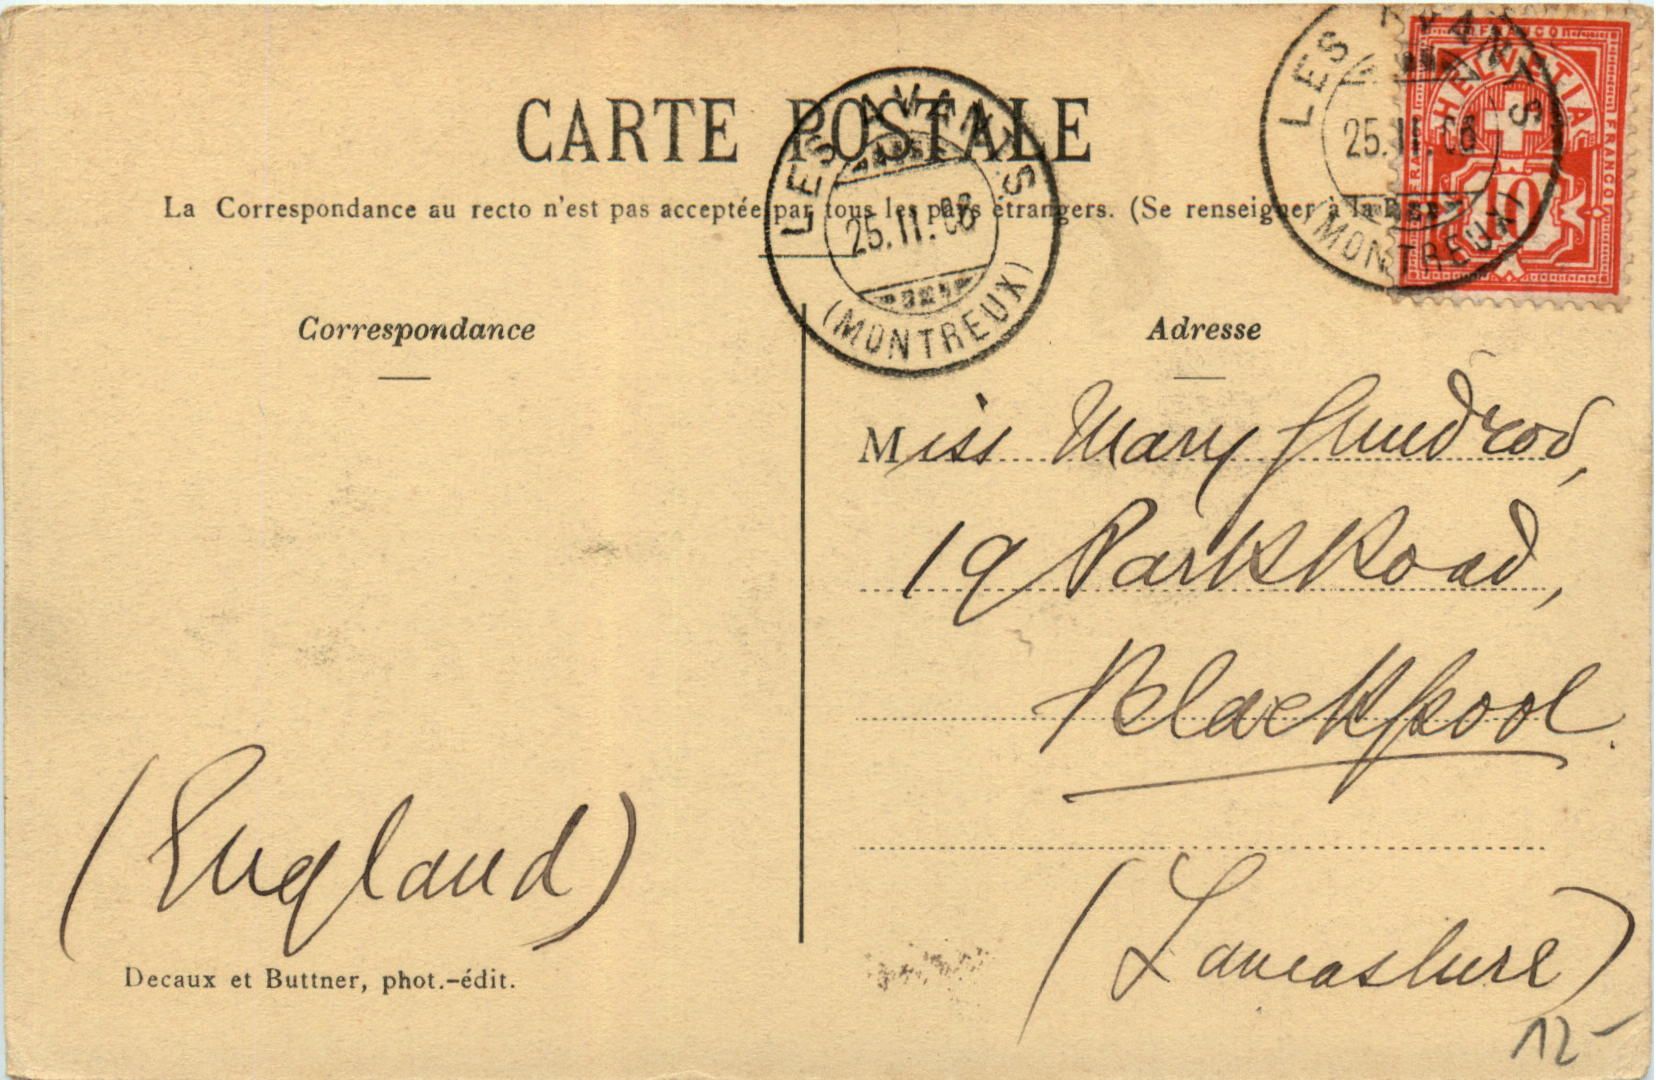 CARTE POSTALE
La Correspondance au recto n'est pas acceptée par tous les pays étrangers. (Se renseigner à la
LES AVANTS
25.II.06
(MONTREUX)
LES AVANTS
25.II.06
(MONTREUX)
FRANCO
HELVETIA
FRANCO
FRANCO
10
Correspondance
Adresse
Miss Mary Gundrod,
19 Park Road,
Blackpool.
(England)
(Lancashire)
Decaux et Buttner, phot.-édit.
12-